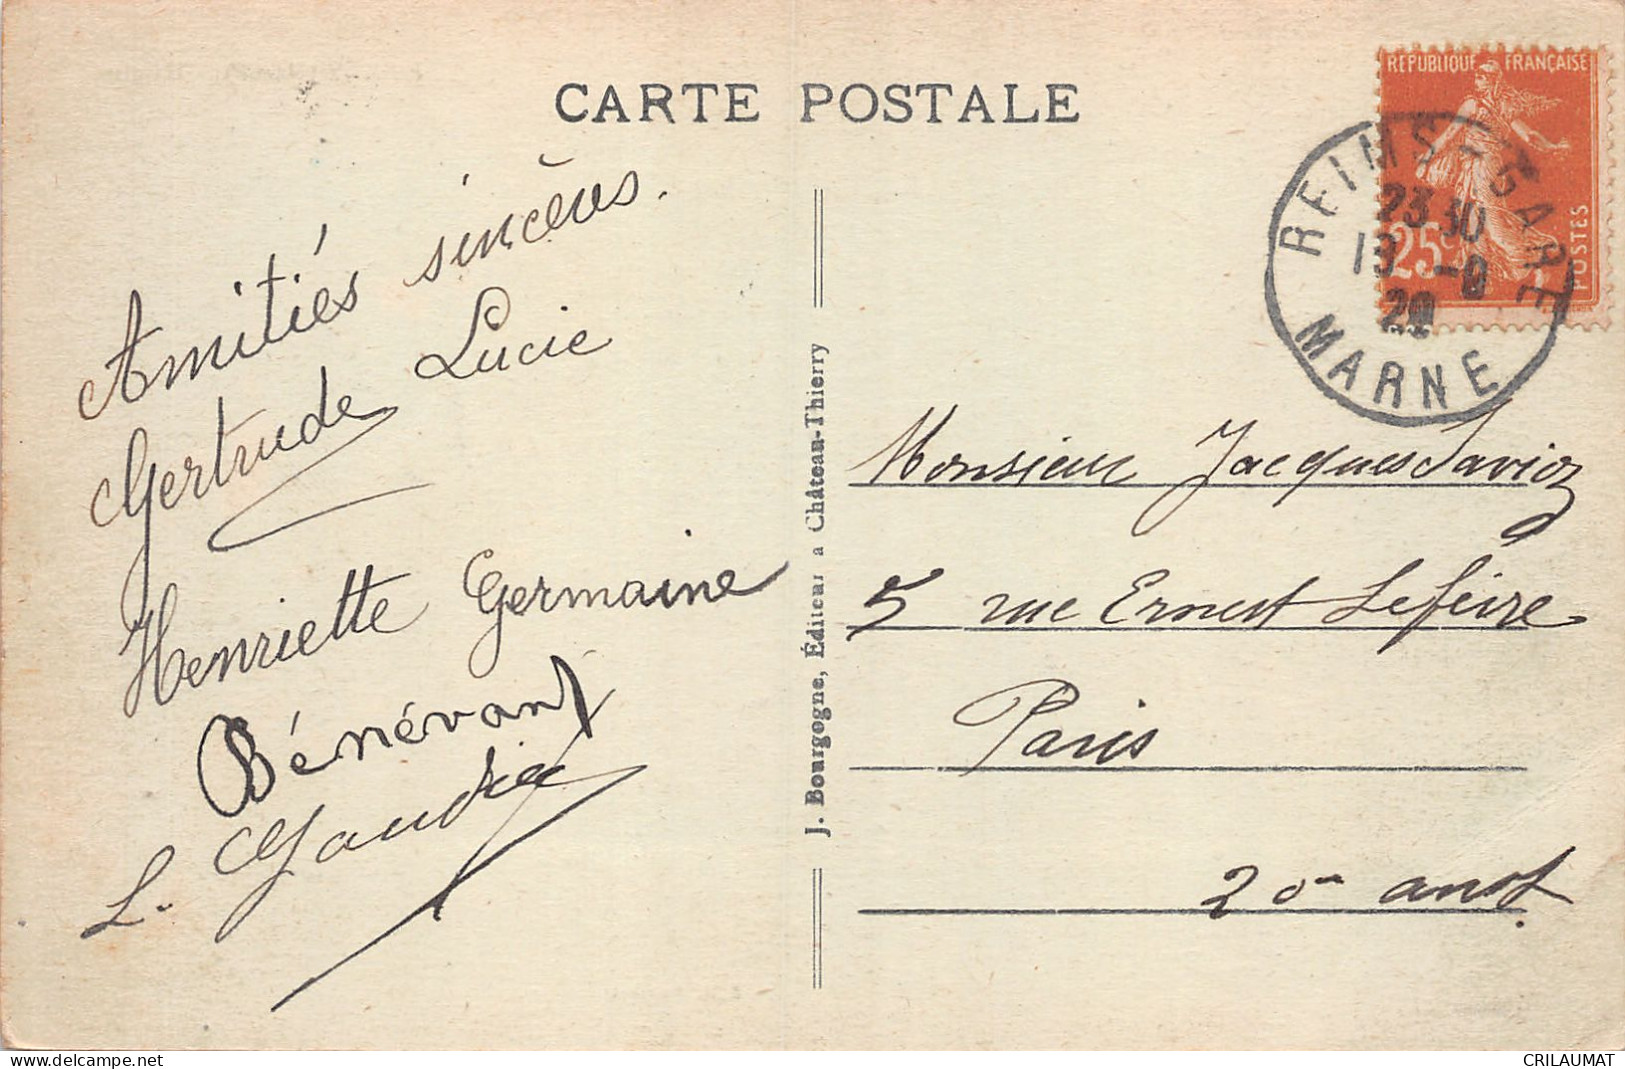 CARTE POSTALE
REPUBLIQUE FRANÇAISE
25c
POSTES
REIMS-GARE
23 30
MARNE
Amitiés sincères.
Gertrude Lucie
Henriette Germaine
Bénévant
L. Gaudier
J. Bourgogne, Éditeur a Château-Thierry
Monsieur Jacques Savioz
5 rue Ernest Lefèvre
Paris
20
www.delcampe.net
CRILAUMAT